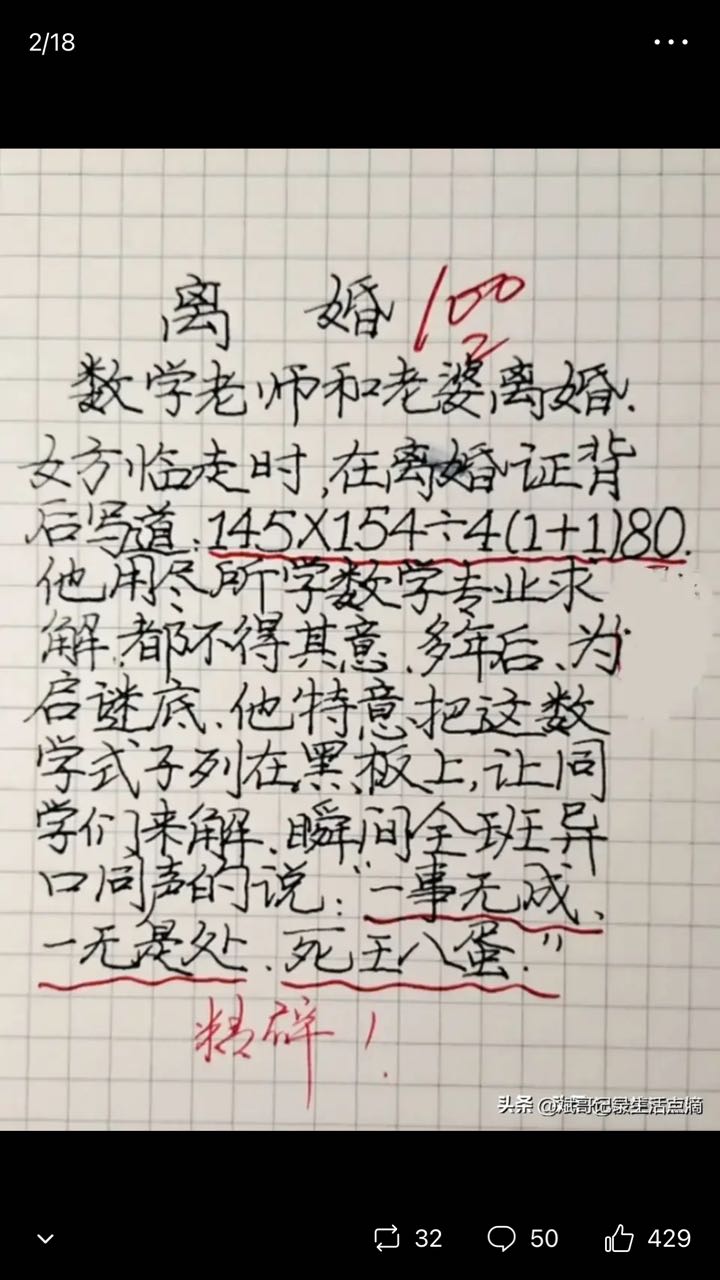 2/18
离 婚 100
数学老师和老婆离婚.
女方临走时,在离婚证背
后写道:145X154÷4(1+1)80.
他用尽所学数学专业求
解,都不得其意.多年后、为
启谜底.他特意把这数
学式子列在黑板上,让同
学们来解.瞬间全班异
口同声的说:“一事无成、
一无是处.死王八蛋.”
精辟!
头条 @斌哥记录生活点滴
32 50 429